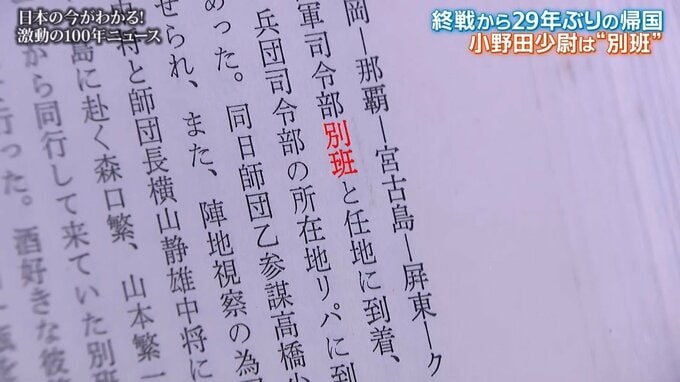 日本の今がわかる!
激動の100年ニュース
終戦から29年ぶりの帰国
小野田少尉は“別班”
岡ー那覇ー宮古島ー屏東ーク
軍司令部別班と任地に到着、
めった。同日師団乙参謀高橋小
兵団司令部の所在地リパに到
せられ、また、陣地視察の為
中将と師団長横山静雄中将に
島に赴く森口繁、山本繁一
から同行して来ていた別班
に行った。酒好きな彼